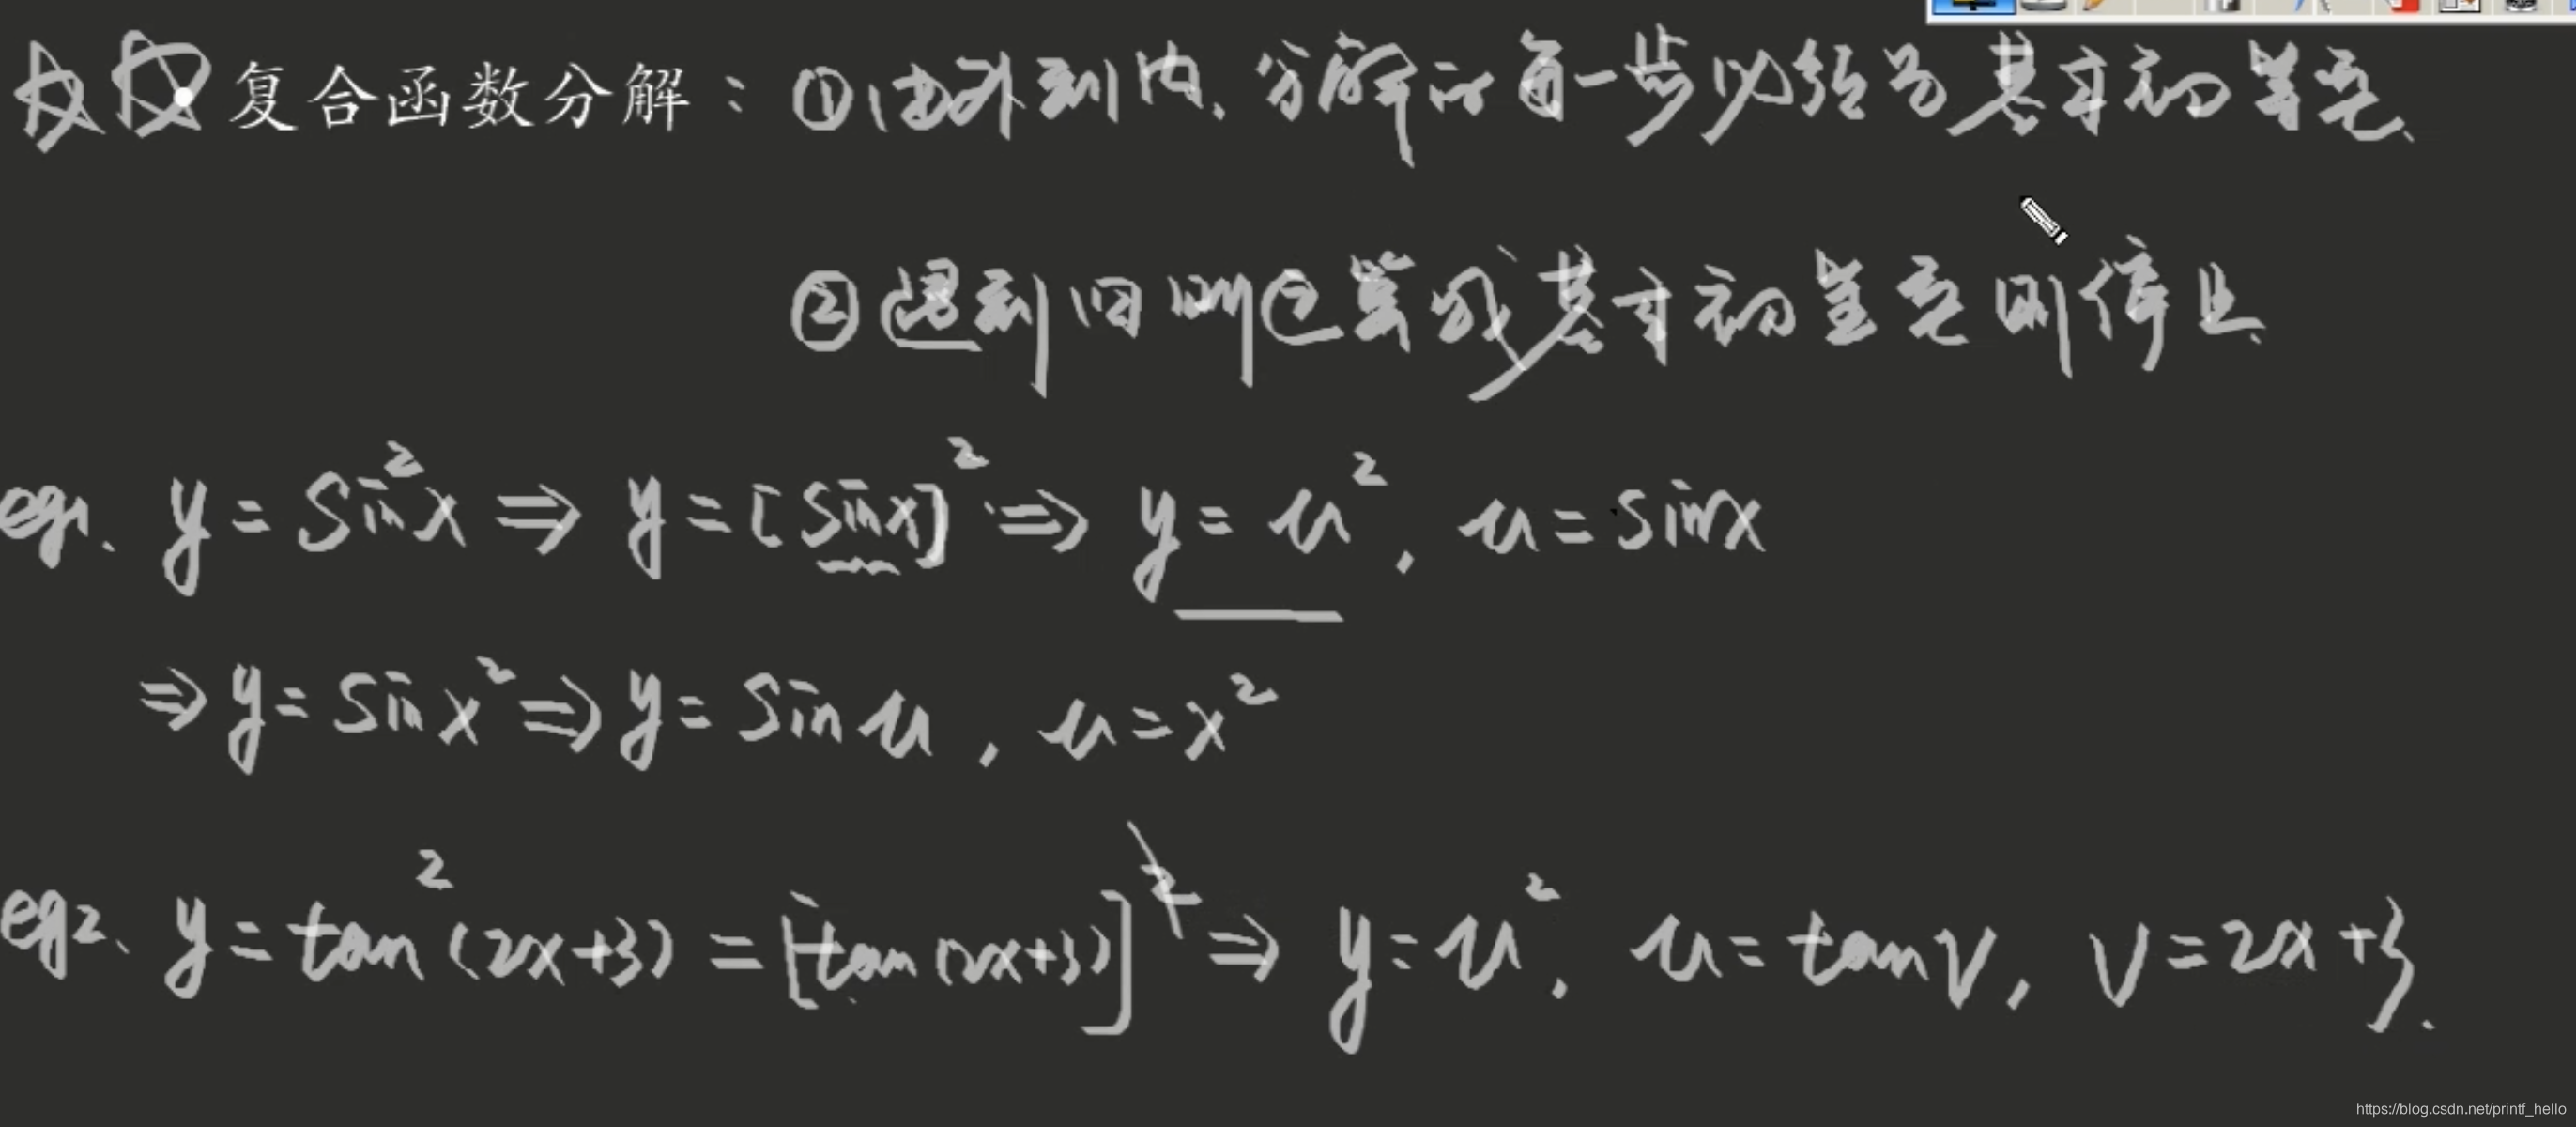 复合函数分解：①由外到内，分解的每一步必须为基本初等函.
②遇到四则运算或基本初等函则停止.
eg1. y = sin²x ⇒ y = [sinx]² ⇒ y = u², u = sinx
⇒ y = sin x² ⇒ y = sin u, u = x²
eg2、y = tan²(2x+3) = [tan(2x+3)]² ⇒ y = u², u = tanv, v = 2x+3.
https://blog.csdn.net/printf_hello